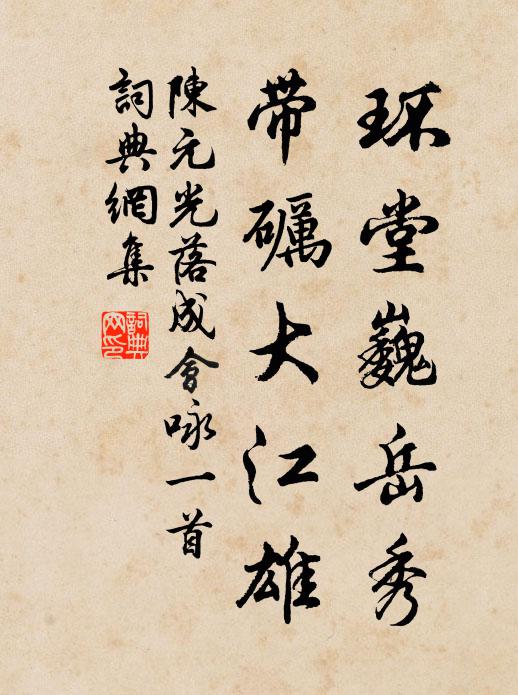 环堂巍岳秀
带礪大江雄
陳元光落成會咏一首
詞典網集
詞典网印